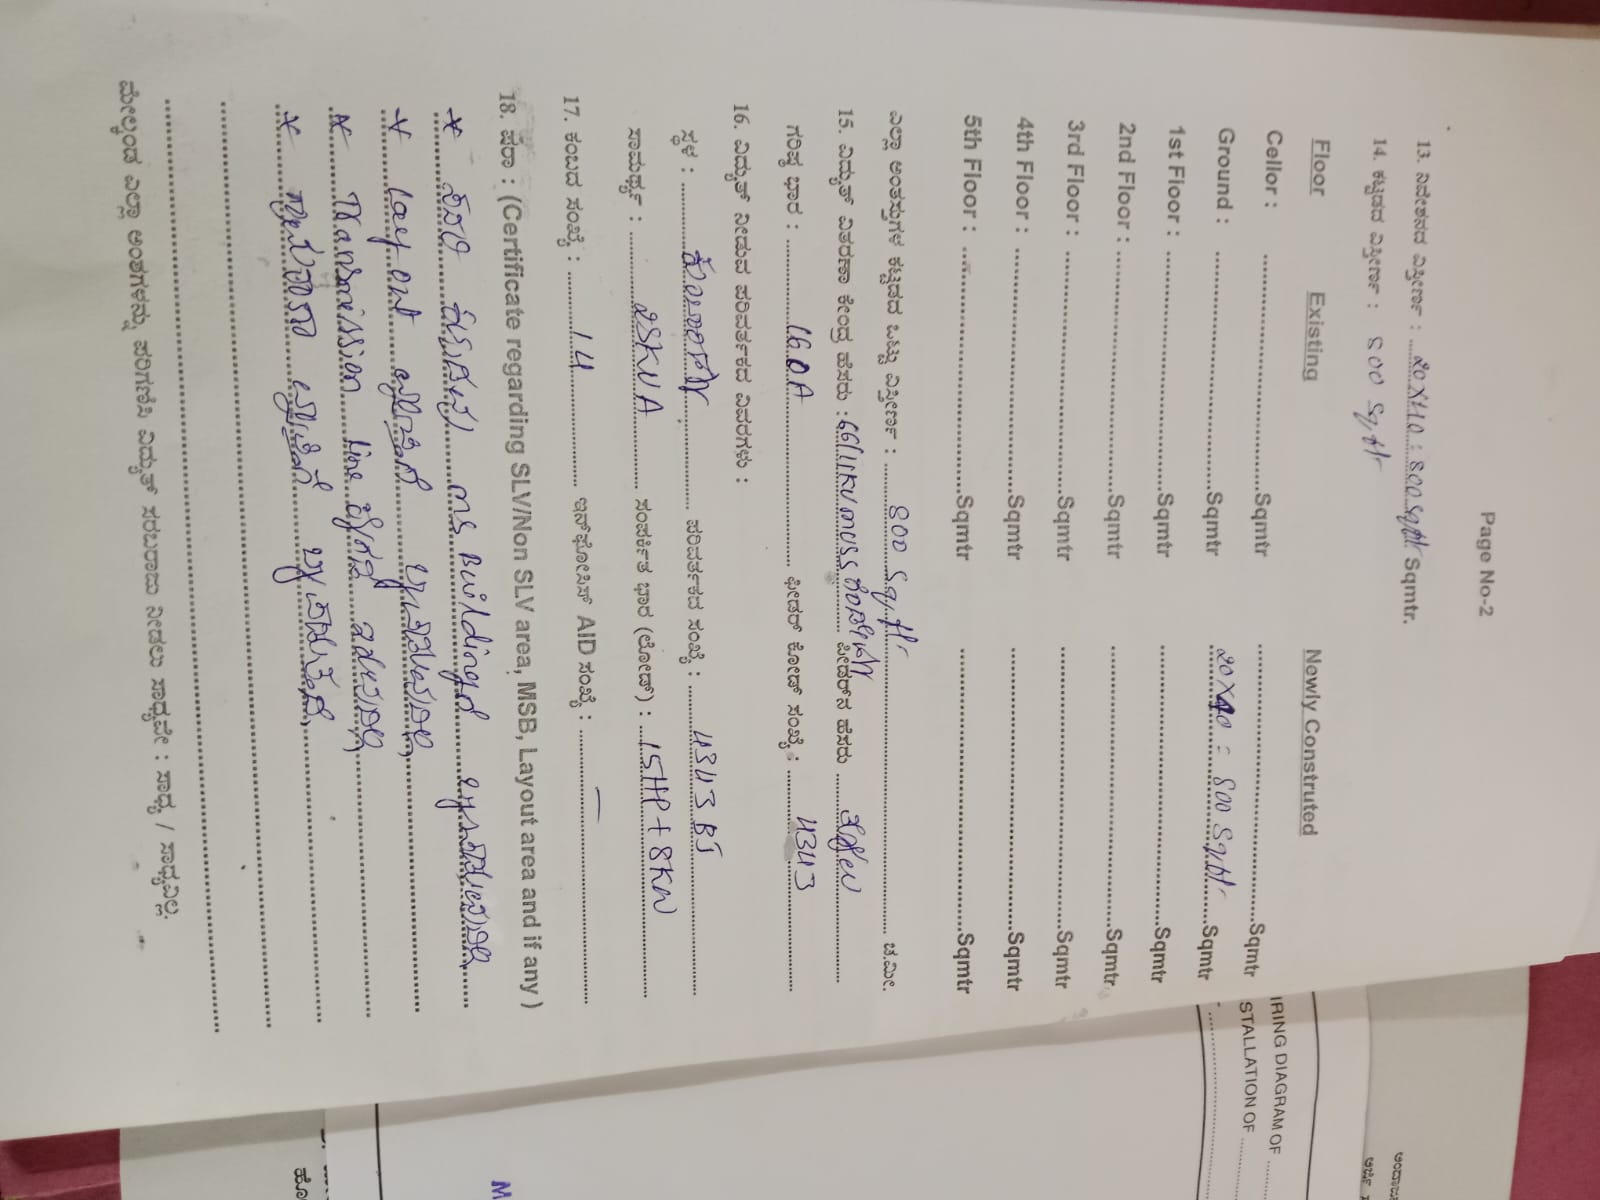 Page No-2
13. ನಿವೇಶನದ ವಿಸ್ತೀರ್ಣ : 20X40 = 800 Sqft Sqmtr.
14. ಕಟ್ಟಡದ ವಿಸ್ತೀರ್ಣ : 800 Sqft
Floor Existing Newly Construted
Cellor : Sqmtr Sqmtr
Ground : Sqmtr 20X40 = 800 Sqft Sqmtr
1st Floor : Sqmtr Sqmtr
2nd Floor : Sqmtr Sqmtr
3rd Floor : Sqmtr Sqmtr
4th Floor : Sqmtr Sqmtr
5th Floor : Sqmtr Sqmtr
ಎಲ್ಲಾ ಅಂತಸ್ತುಗಳ ಕಟ್ಟಡದ ಒಟ್ಟು ವಿಸ್ತೀರ್ಣ : 800 Sqft ಚ.ಮೀ.
15. ವಿದ್ಯುತ್ ವಿತರಣಾ ಕೇಂದ್ರ ಹೆಸರು : 66/11KV MUSS ಫೀಡರ್‌ನ ಹೆಸರು
ಗರಿಷ್ಠ ಭಾರ : 160A ಫೀಡರ್ ಕೋಡ್ ಸಂಖ್ಯೆ : 4343
16. ವಿದ್ಯುತ್ ನೀಡುವ ಪರಿವರ್ತಕದ ವಿವರಗಳು :
ಸ್ಥಳ : ಪರಿವರ್ತಕದ ಸಂಖ್ಯೆ : 4343 BJ
ಸಾಮರ್ಥ್ಯ : 25KVA ಸಂಪರ್ಕಿತ ಭಾರ (ಲೋಡ್) : 15HP + 8KW
17. ಕಂಬದ ಸಂಖ್ಯೆ : 14 ಇನ್‌ಫೋಸಿಸ್ AID ಸಂಖ್ಯೆ : —
18. ಷರಾ : (Certificate regarding SLV/Non SLV area, MSB, Layout area and if any )
* ಸದರಿ MS Buildingಗೆ
* Lay out ವ್ಯಾಪ್ತಿಗೆ
* Transmission line ಕೆಳಗಡೆ ಇರುವುದಿಲ್ಲ,
* ಗ್ರಾಮಠಾಣಾ ವ್ಯಾಪ್ತಿಗೆ
ಮೇಲ್ಕಂಡ ಎಲ್ಲಾ ಅಂಶಗಳನ್ನು ಪರಿಗಣಿಸಿ ವಿದ್ಯುತ್ ಸರಬರಾಜು ನೀಡಲು ಸಾಧ್ಯವೇ : ಸಾಧ್ಯ / ಸಾಧ್ಯವಿಲ್ಲ.
IRING DIAGRAM OF
STALLATION OF